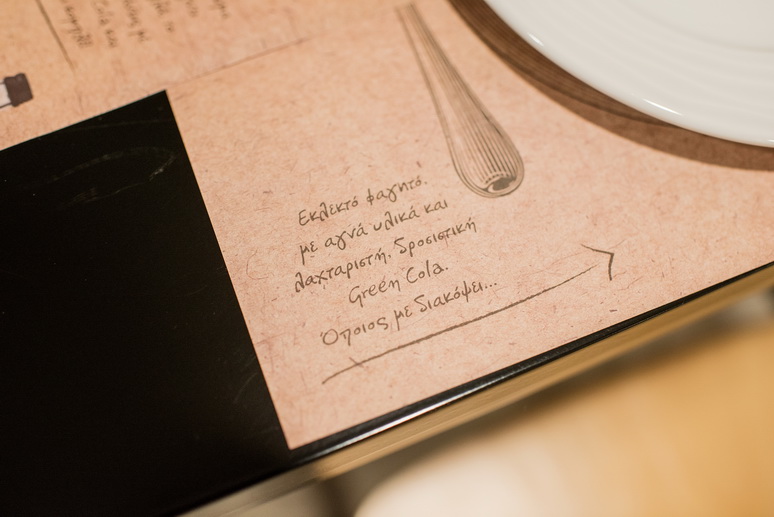 Εκλεκτό φαγητό.
με αγνά υλικά και
λαχταριστή, δροσιστική
Green Cola.
Όποιος με διακόψει...